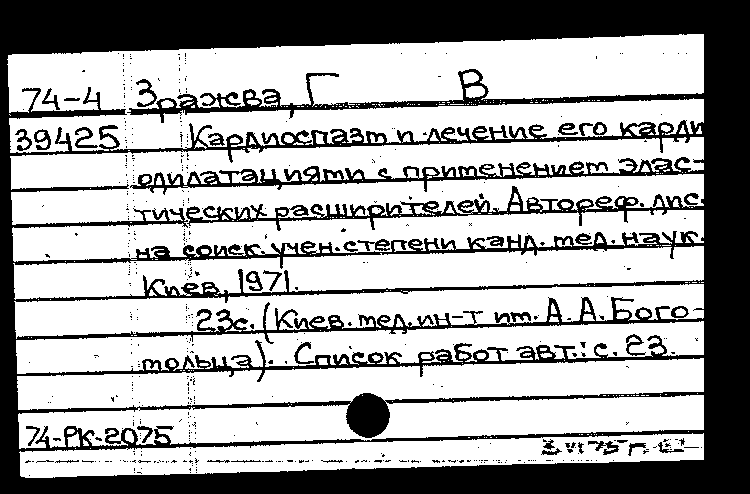 74-4 Зражва, Г В
39425 Кардиоспазм и лечение его карди
одилатациями с применением элас-
тических расширителей. Автореф. дис.
на соиск. учен. степени канд. мед. наук.
Киев, 1971.
23с. (Киев. мед. ин-т им. А. А. Бого-
мольца). Список работ авт.: с. 23.
74-РК-2075